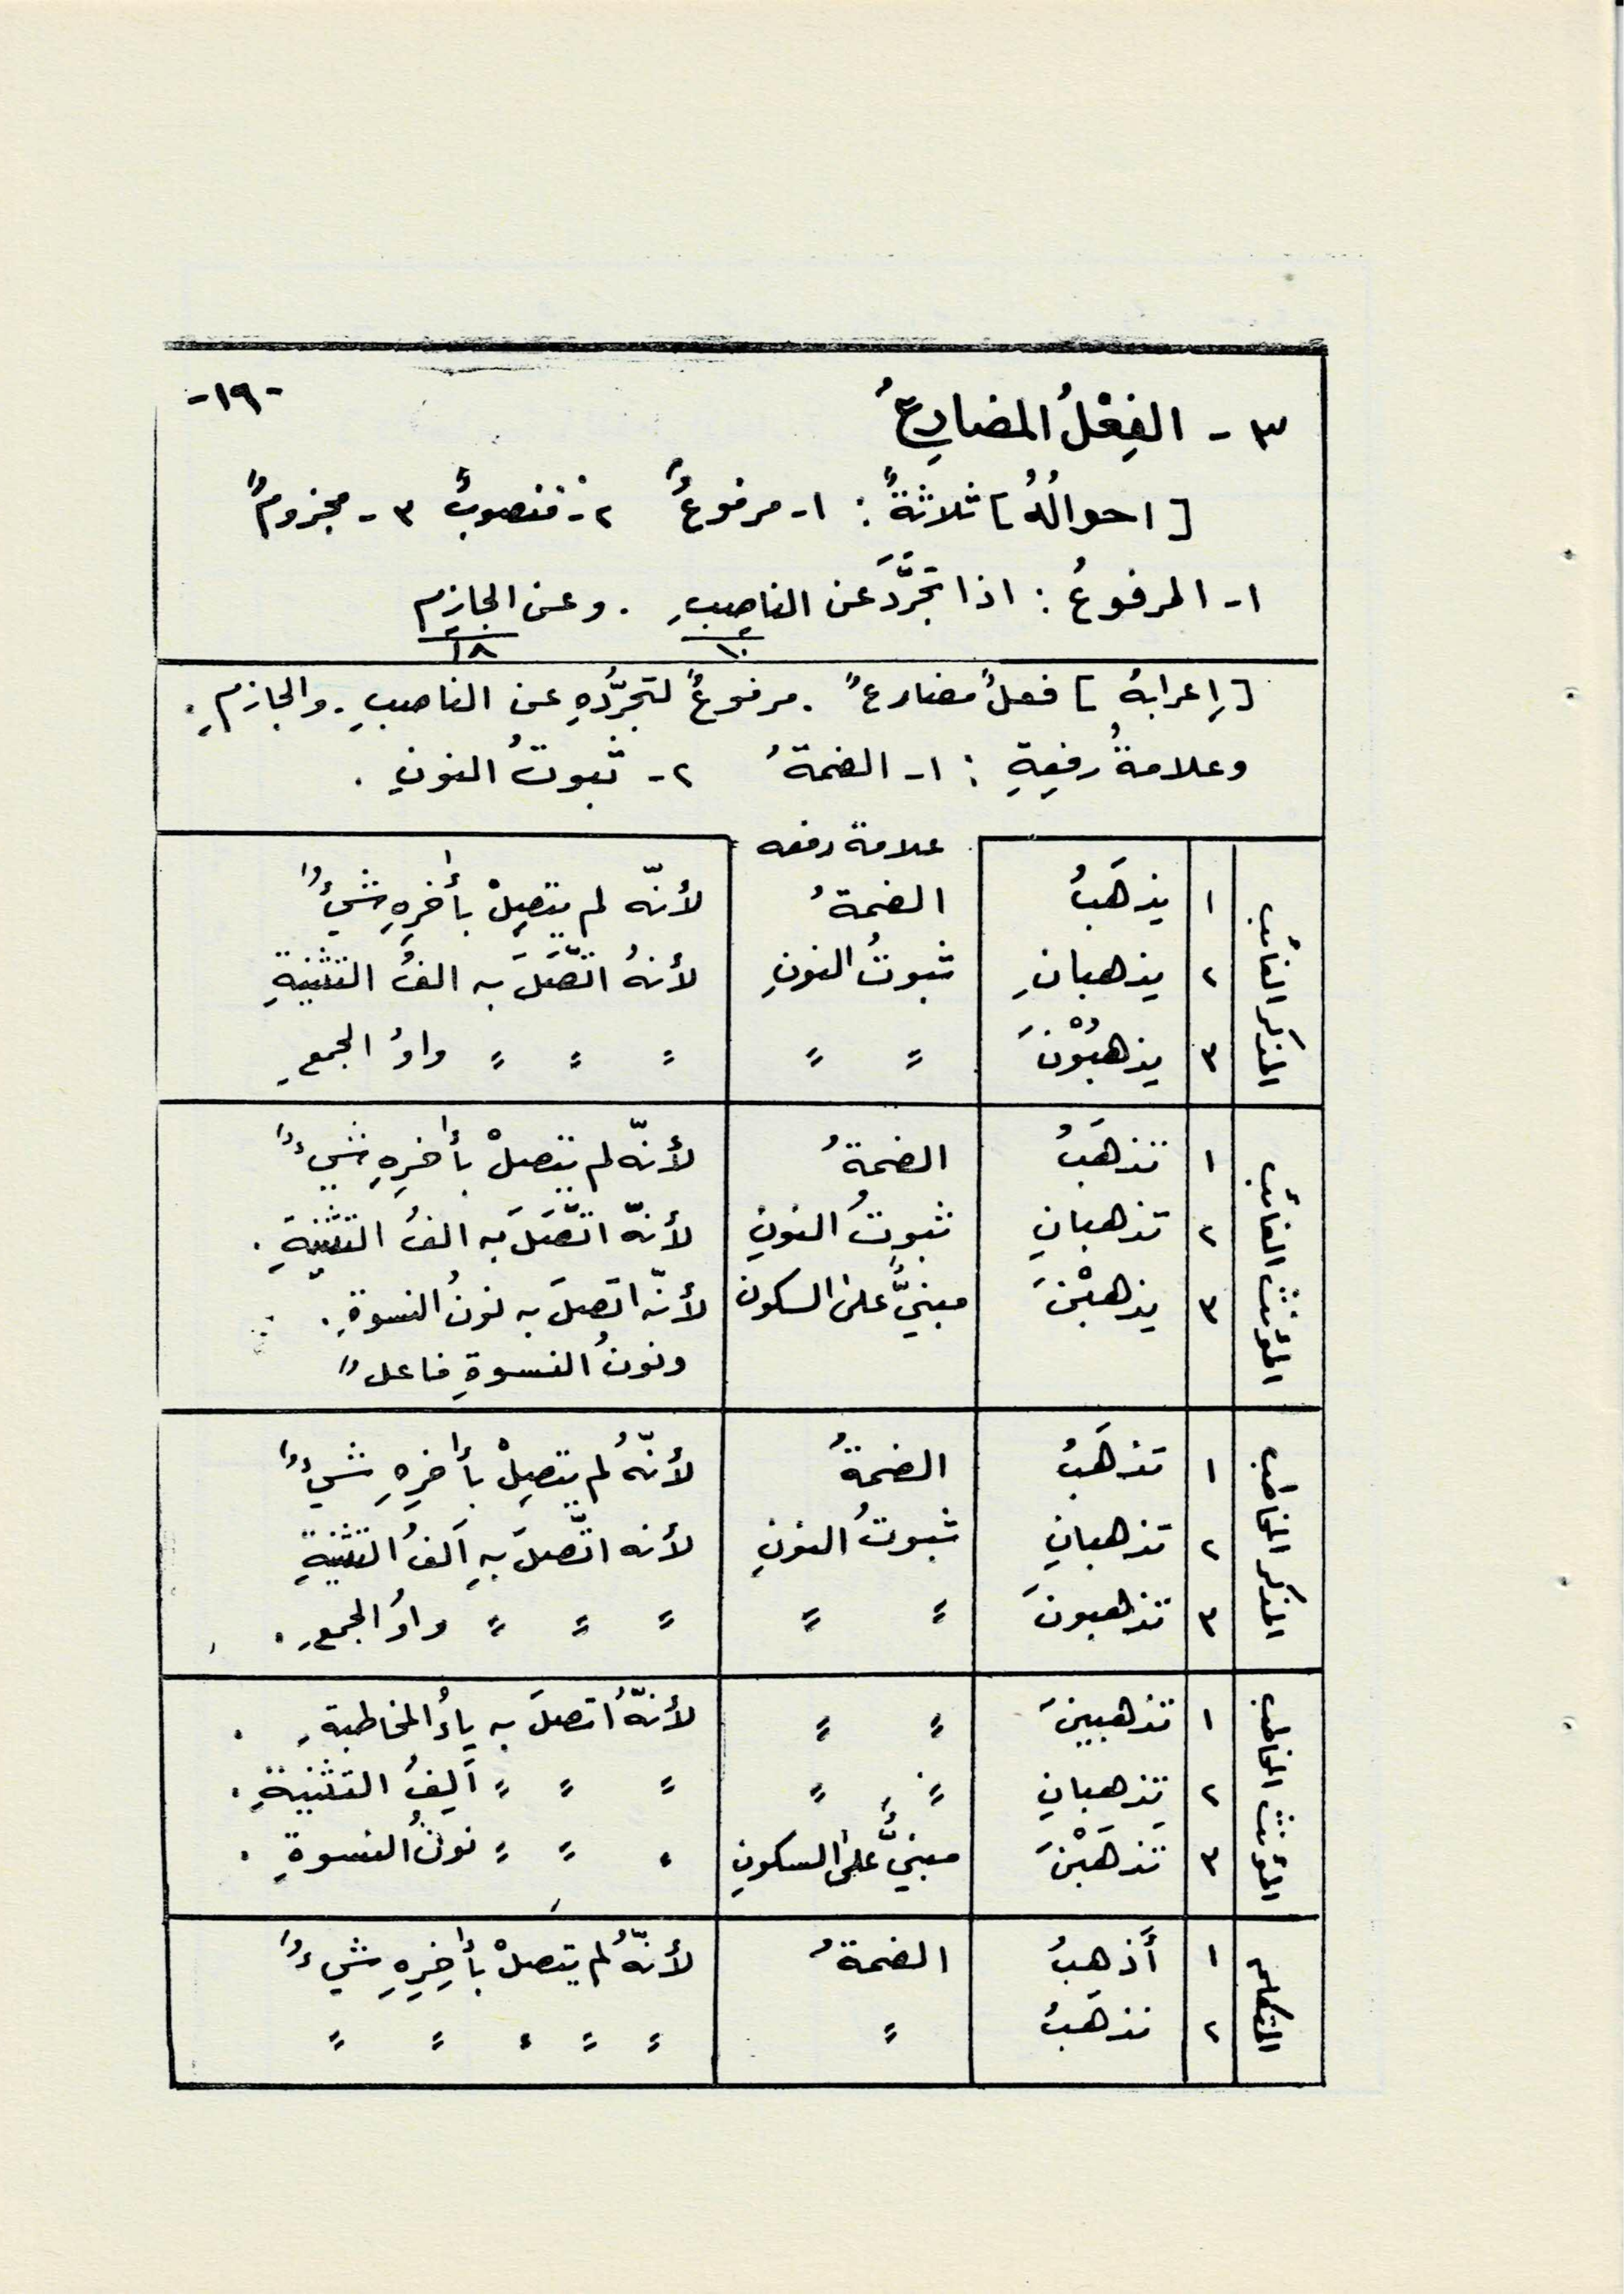 -١٩-
٣ - الفِعْلُ المضارِعُ
[احوالُهُ] ثلاثةٌ : ١- مرفوعٌ ٢- منصوبٌ ٣- مجزومٌ
١- المرفوعُ : اذا تجرَّدَ عن الناصِبِ . وعن الجازِمِ
١٠ ١٨
[إعرابهُ] فعلٌ مضارعٌ . مرفوعٌ لتجرُّدِهِ عن الناصبِ . والجازمِ .
وعلامةُ رفعِهِ : ١- الضمةُ ٢- ثبوتُ النونِ .
علامة رفعه
المذكر الغائب
١ يذهَبُ الضمةُ لأنّه لم يتصِلْ بأخِرِهِ شيءٌ
٢ يذهبانِ ثبوتُ النونِ لأنهُ اتَّصَلَ به الفُ التثنيةِ
٣ يذهبُوْنَ = = = = = واوُ الجمعِ
المؤنث الغائب
١ تذهَبُ الضمةُ لأنّه لم يتصلْ بأخِرِهِ شيءٌ
٢ تذهبانِ ثبوتُ النونِ لأنّه اتَّصَلَ به الفُ التثنيةِ .
٣ يذهبْنَ مبنيٌّ على السكون لأنّه اتصلَ به نونُ النسوةِ .
ونونُ النسوةِ فاعلٌ
المذكر المخاطب
١ تذهَبُ الضمةُ لأنّهُ لم يتصِلْ بأخِرِهِ شيءٌ
٢ تذهبانِ ثبوتُ النونِ لأنه اتَّصلَ بهِ ألفُ التثنيةِ
٣ تذهبونَ = = = = = واوُ الجمعِ .
المؤنث المخاطب
١ تذهبينَ = = لأنّهُ اتصلَ به ياءُ المخاطبةِ .
٢ تذهبانِ = = = = = أَلِفُ التثنيةِ .
٣ تذهَبْنَ مبنيٌّ على السكونِ = = = نونُ النسوةِ .
المتكلم
١ أَذهَبُ الضمةُ لأنّهُ لم يتصلْ بأخِرِهِ شيءٌ
٢ نذهَبُ = = = = = =